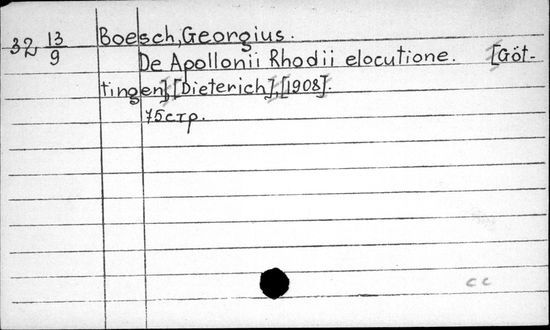 32 13/9 Boesch, Georgius.
De Apollonii Rhodii elocutione. [Göt-
tingen],[Dieterich],[1908].
75стр.
cc